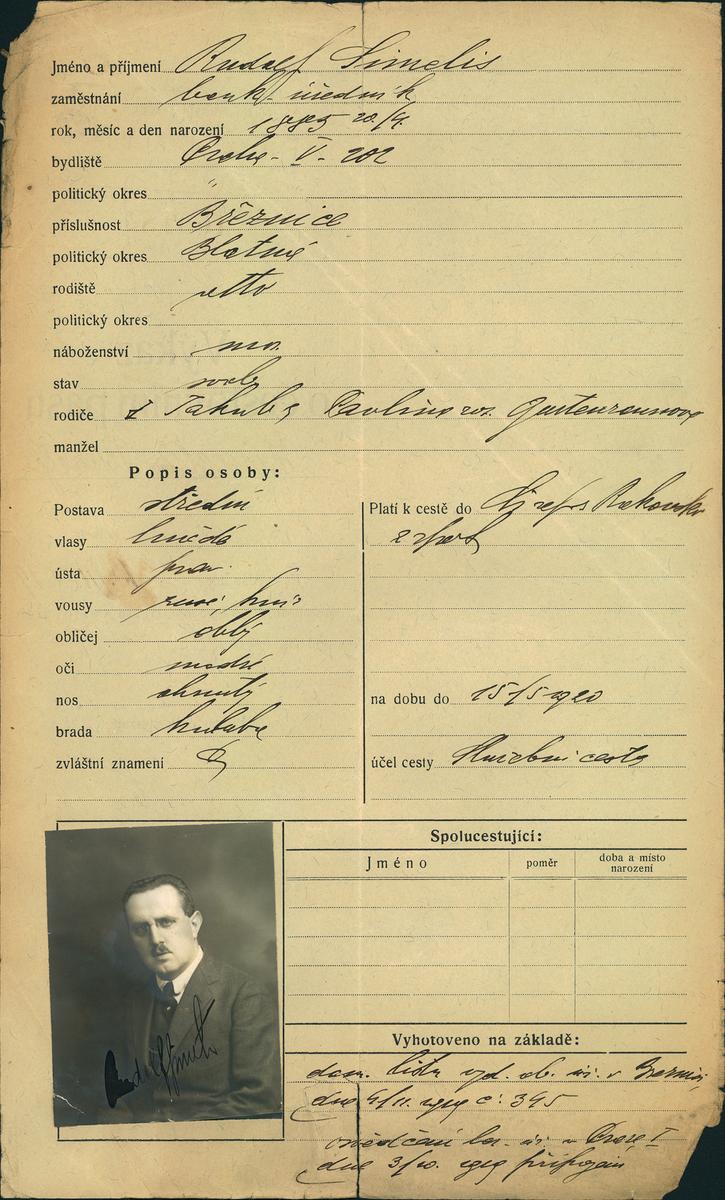 Jméno a příjmení Rudolf Simelis
zaměstnání bank. úředník
rok, měsíc a den narození 1885 20/4
bydliště Praha - V - 202
politický okres "
příslušnost Březnice
politický okres Blatná
rodiště dtto
politický okres
náboženství
stav svob
rodiče Jakub & Pavlina roz.
manžel
Popis osoby:
Postava střední
vlasy hnědé
ústa prav.
vousy
obličej oblý
oči modré
nos ohnutý
brada kulatá
zvláštní znamení
Platí k cestě do Rakouska
a zpět
na dobu do 15/5 1920
účel cesty Služební cesta
Spolucestující:
Jméno poměr doba a místo narození
Vyhotoveno na základě:
dom. listu vyd. ob. úř. v Březnici
dne 4/11. 1919 č: 395
osvědčení ber. úř. v Praze I
dne 3/10. 1919 připojení